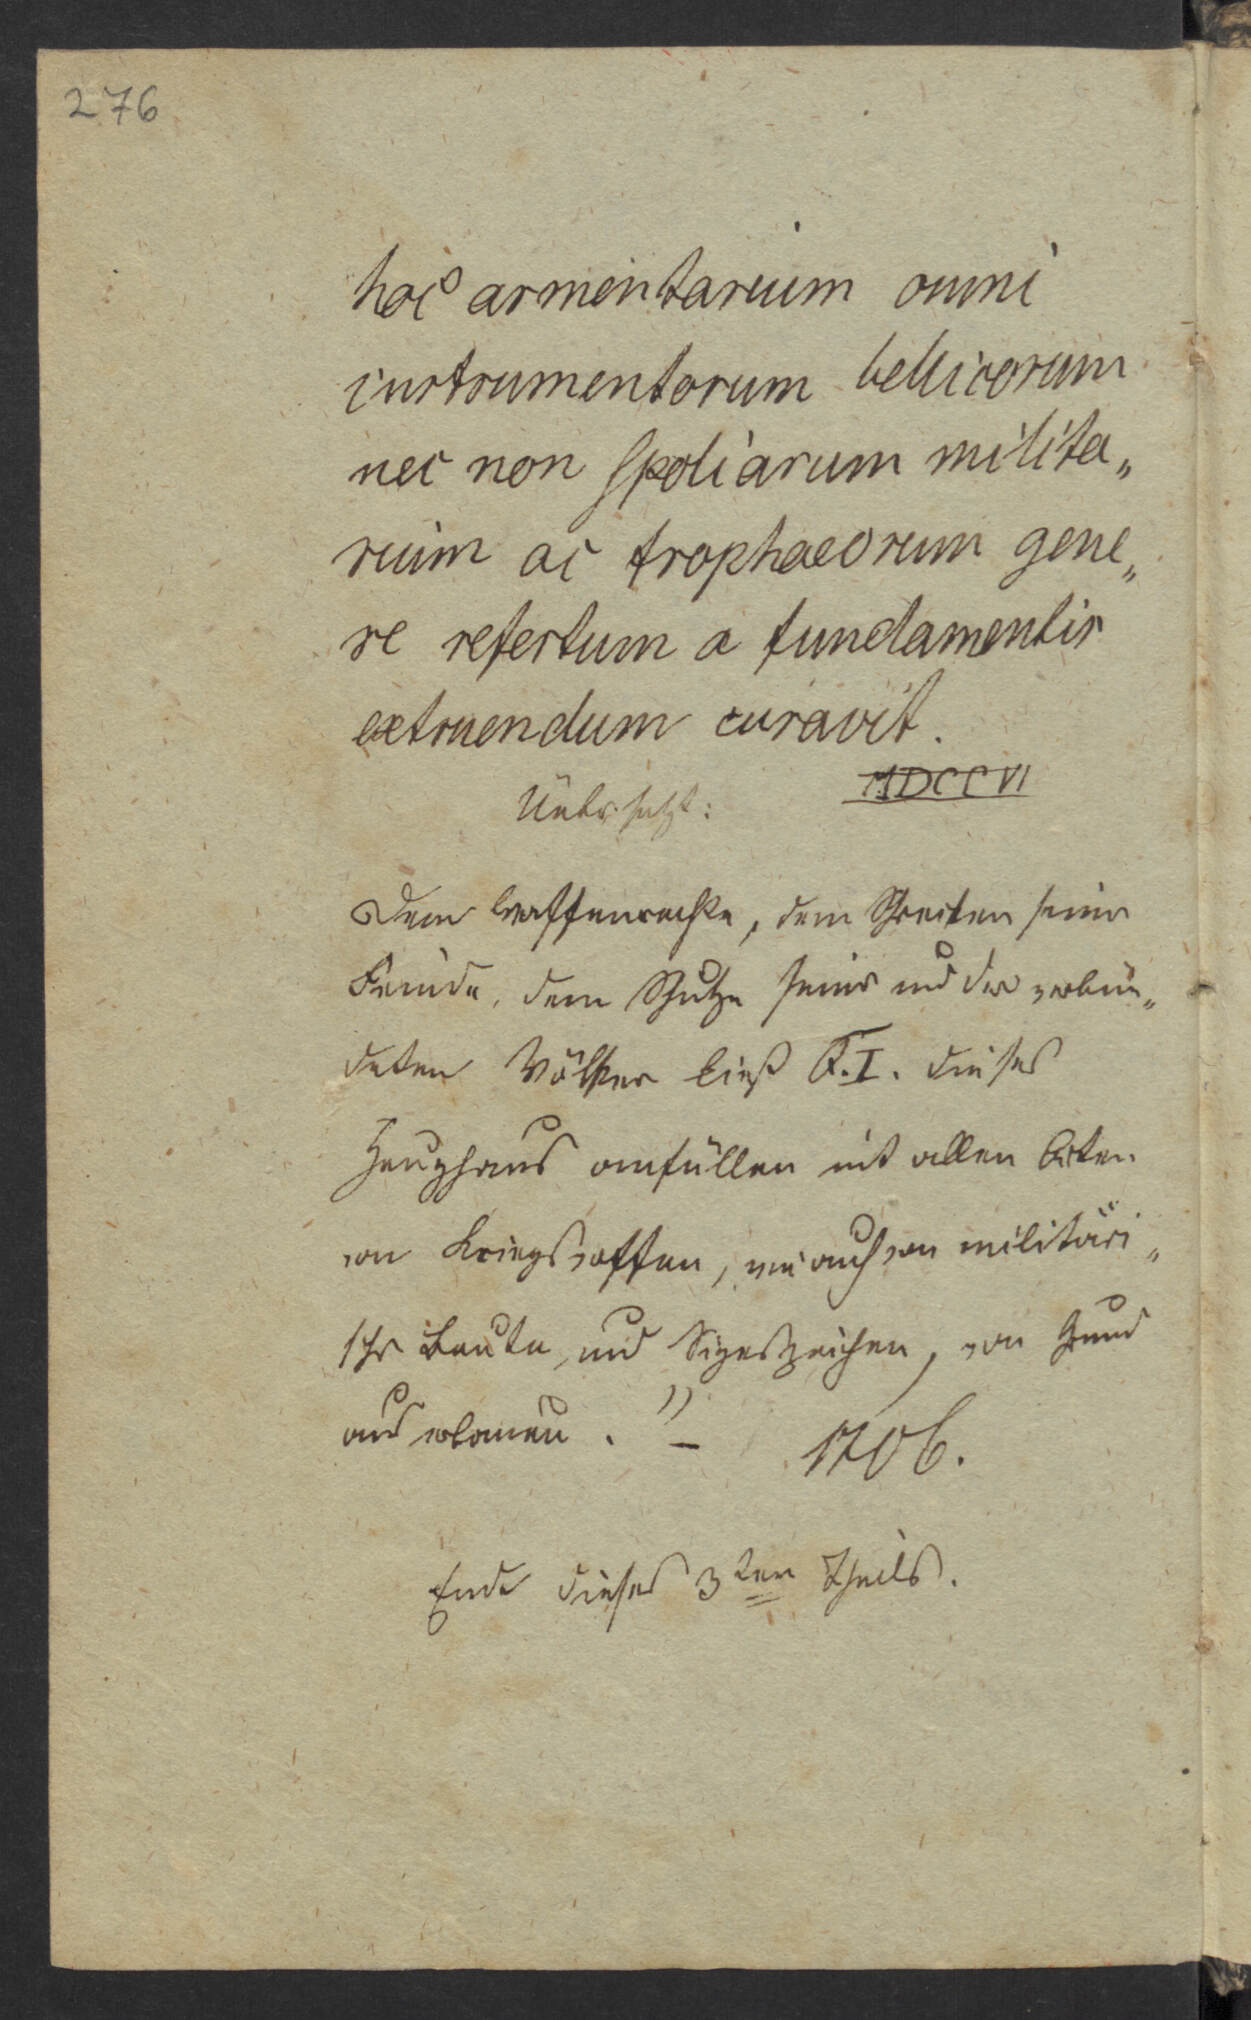 276
hoc armentarium omni
instrumentorum bellicorum
nec non spoliarum milita„
rium ac trophaeorum gene„
re refertum a fundamentis
extruendum curavit.
MDCCVI
Uebersetzt:
Dem Waffenrechte, dem Schrecken seiner
Feinde, dem Schutze seiner und der verbün„
deten Völker ließ F. I. dieses
Zeughaus anfüllen mit allen Arten
von Kriegswaffen, wie auch von militäri„
scher Beute, und Sigeszeichen, von Grund
aus erbauen." – 1706.
Ende dieses 3ten Theils.